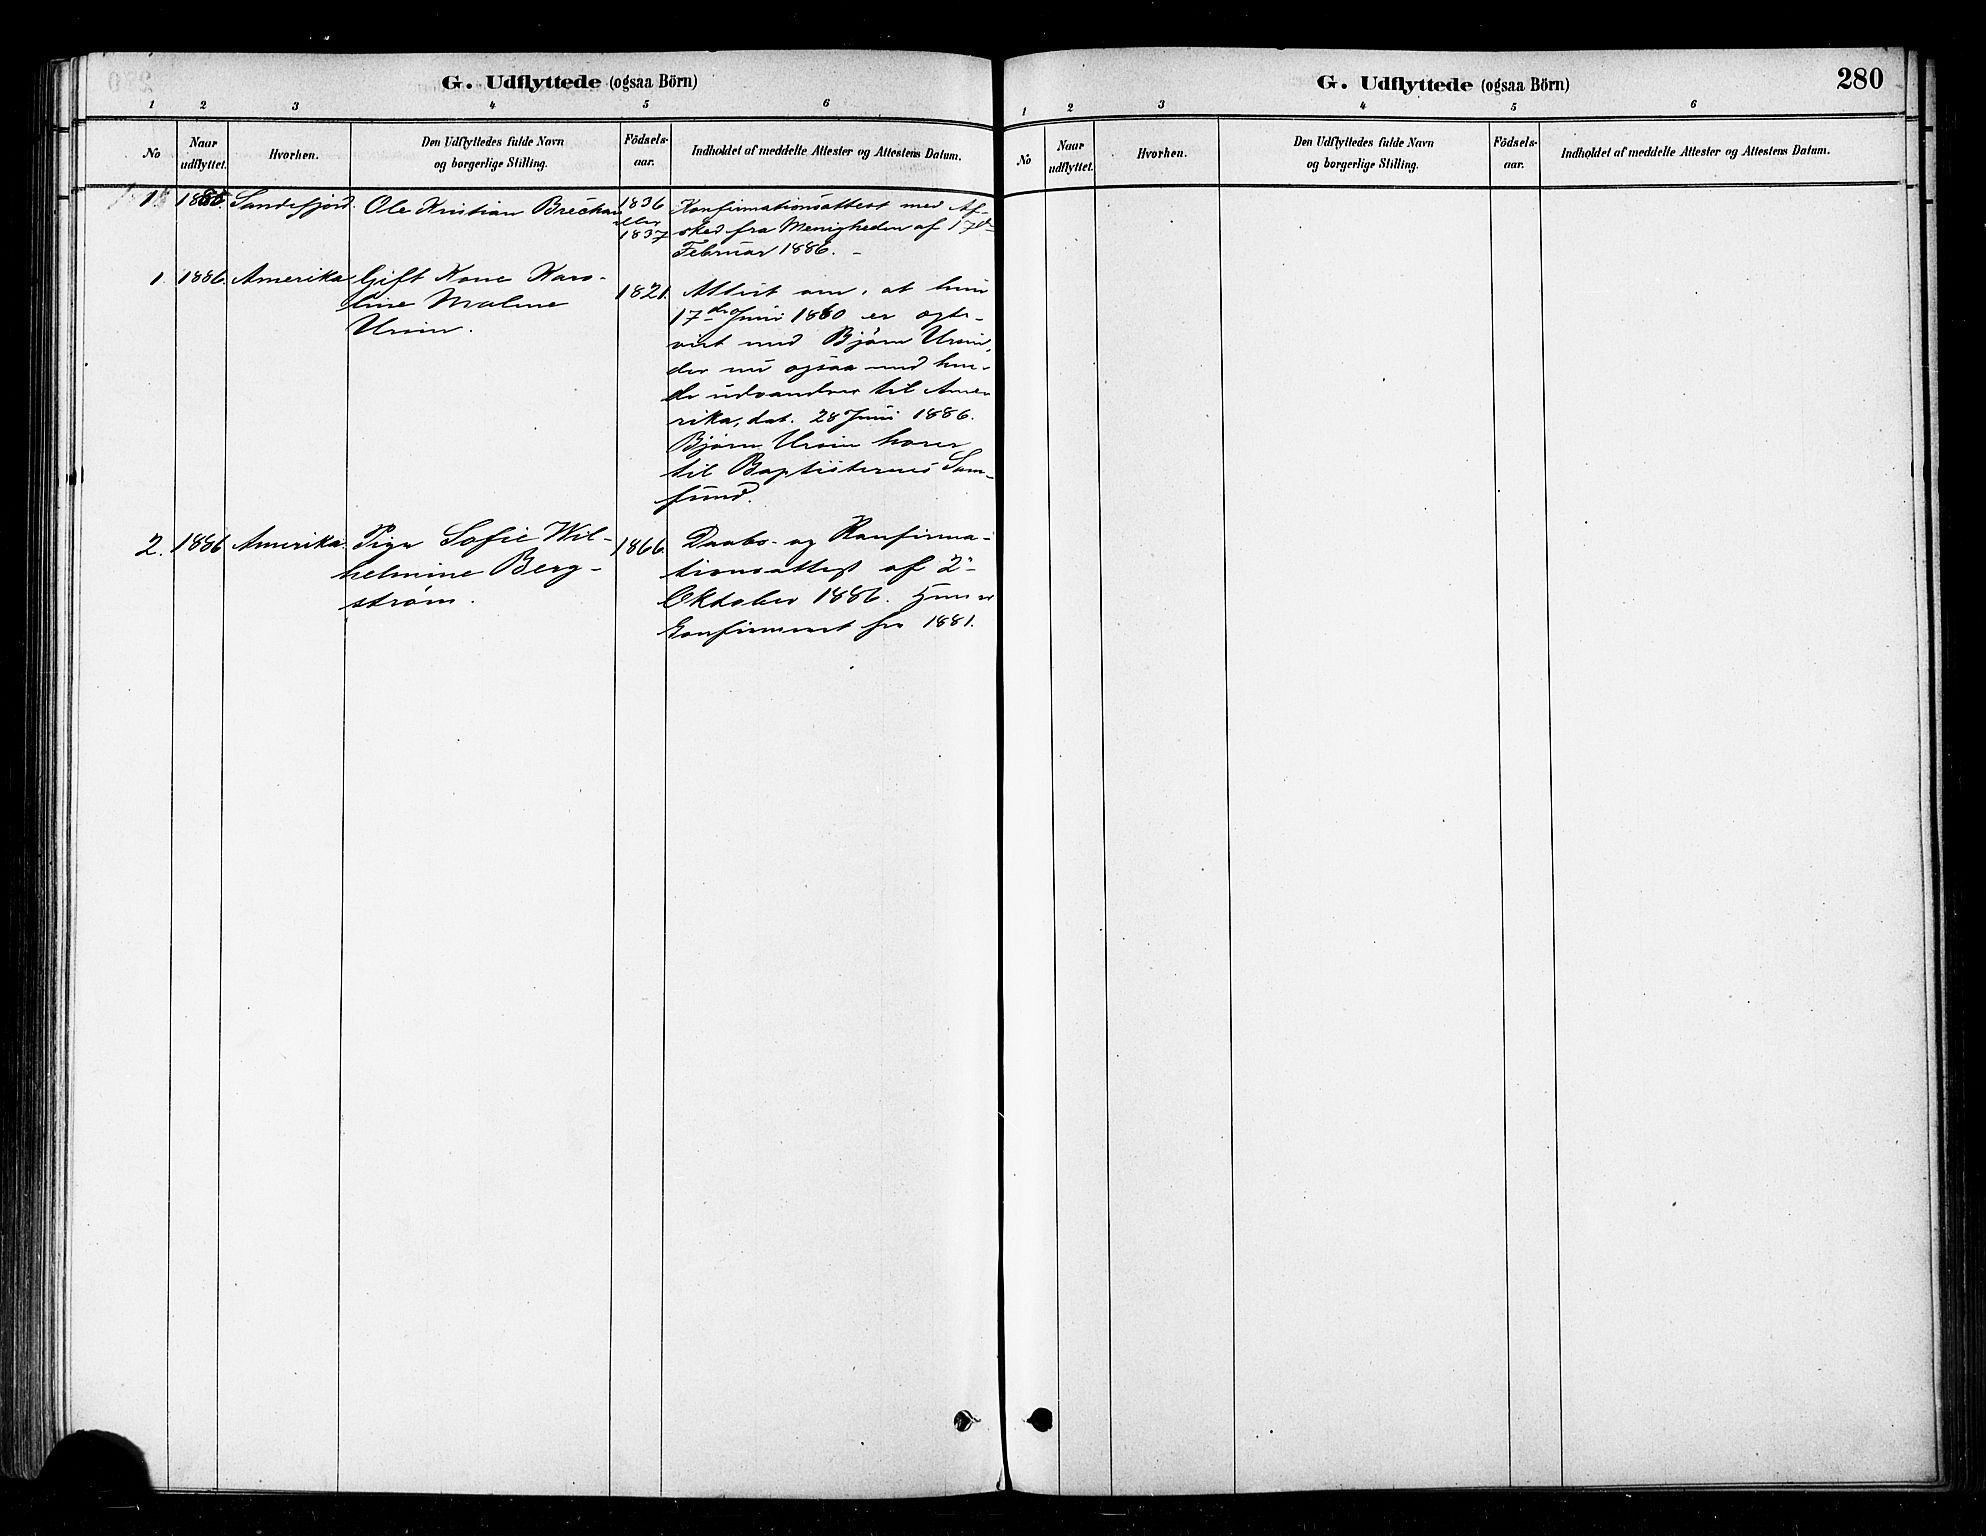 G. Udflyttede (ogsaa Börn)
1 2 3 4 5 6
No
Naar udflyttet.
Hvorhen.
Den Udflyttedes fulde Navn
og borgerlige Stilling.
Födsels-
aar.
Indholdet af meddelte Attester og Attestens Datum.
1. 1886. Sandefjord. Ole Kristian Brechan 1836
eller
1837
Konfirmationsattest med Af-
sked fra Menigheden af 17de
Februar 1886.
1. 1886. Amerika Gift Kone Karo-
line Malene
Ursin.
1821. Attest om, at hun
17de Juni 1860 er ægte-
viet med Bjørn Ursin,
der nu ogsaa med hen-
de udvandrer til Ame-
rika, dat. 28 Juni 1886.
Bjørn Ursin hører
til Baptisternes Sam-
fund.
2. 1886 Amerika. Pige Sofie Wil-
helmine Berg-
strøm.
1866. Daabs- og Konfirma-
tionsattest af 2
Oktober 1886. Hun er
konfirmeret fra 1881.
G. Udflyttede (ogsaa Börn)
280
1 2 3 4 5 6
No
Naar
udflyttet.
Hvorhen.
Den Udflyttedes fulde Navn
og borgerlige Stilling.
Födsels-
aar.
Indholdet af meddelte Attester og Attestens Datum.